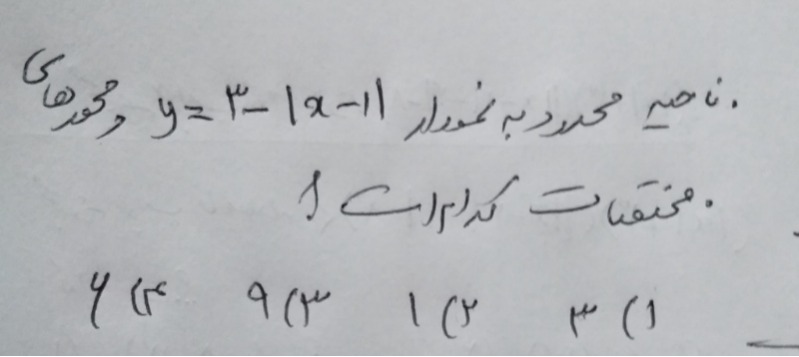 . ناحیه محدود به نمودار y = ۳ - |x - ۱| و محورهای
. مختصات کدام است ؟
۱) ۳ ۲) ۱ ۳) ۹ ۴) ۶